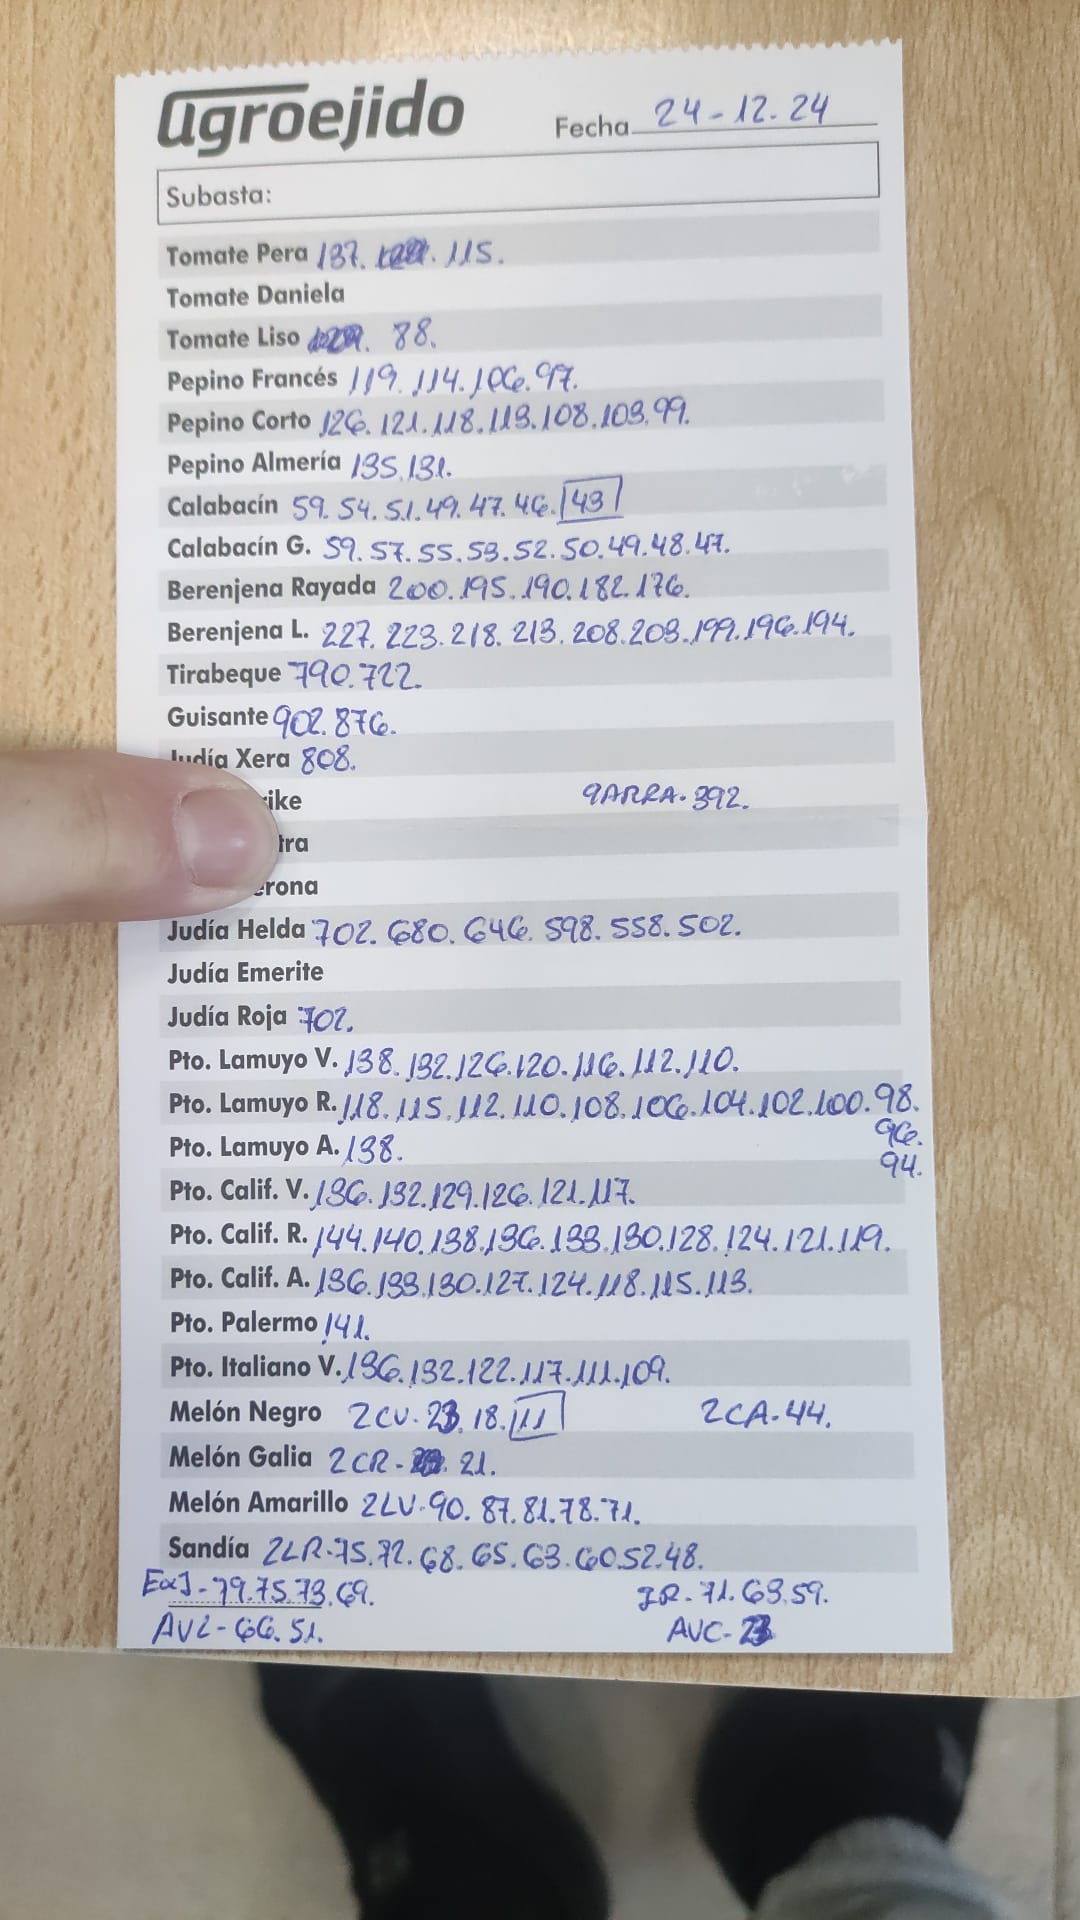 agroejido
Fecha 24-12.24
Subasta:
Tomate Pera 137. 115.
Tomate Daniela
Tomate Liso 88.
Pepino Francés 119.114.106.97.
Pepino Corto 126.121.118.113.108.103.99.
Pepino Almería 135.131.
Calabacín 59.54.51.49.47.46.43
Calabacín G. 59.57.55.53.52.50.49.48.47.
Berenjena Rayada 200.195.190.182.176.
Berenjena L. 227.223.218.213.208.203.199.196.194.
Tirabeque 790.722.
Guisante 902.876.
Judía Xera 808.
ike GARRA.392.
tra
erona
Judía Helda 702.680.646.598.558.502.
Judía Emerite
Judía Roja 702.
Pto. Lamuyo V. 138.132.126.120.116.112.110.
Pto. Lamuyo R. 118.115.112.110.108.106.104.102.100.98.
96.
94.
Pto. Lamuyo A. 138.
Pto. Calif. V. 136.132.129.126.121.117.
Pto. Calif. R. 144.140.138.136.133.130.128.124.121.119.
Pto. Calif. A. 136.133.130.127.124.118.115.113.
Pto. Palermo 141.
Pto. Italiano V. 136.132.122.117.111.109.
Melón Negro 2CV.23.18.111 2CA.44.
Melón Galia 2CR- 21.
Melón Amarillo 2LV.90.87.81.78.71.
Sandía 2LR.75.72.68.65.63.60.52.48.
79.75.73.69. JR.71.63.59.
AVL-66.51. AVC-23